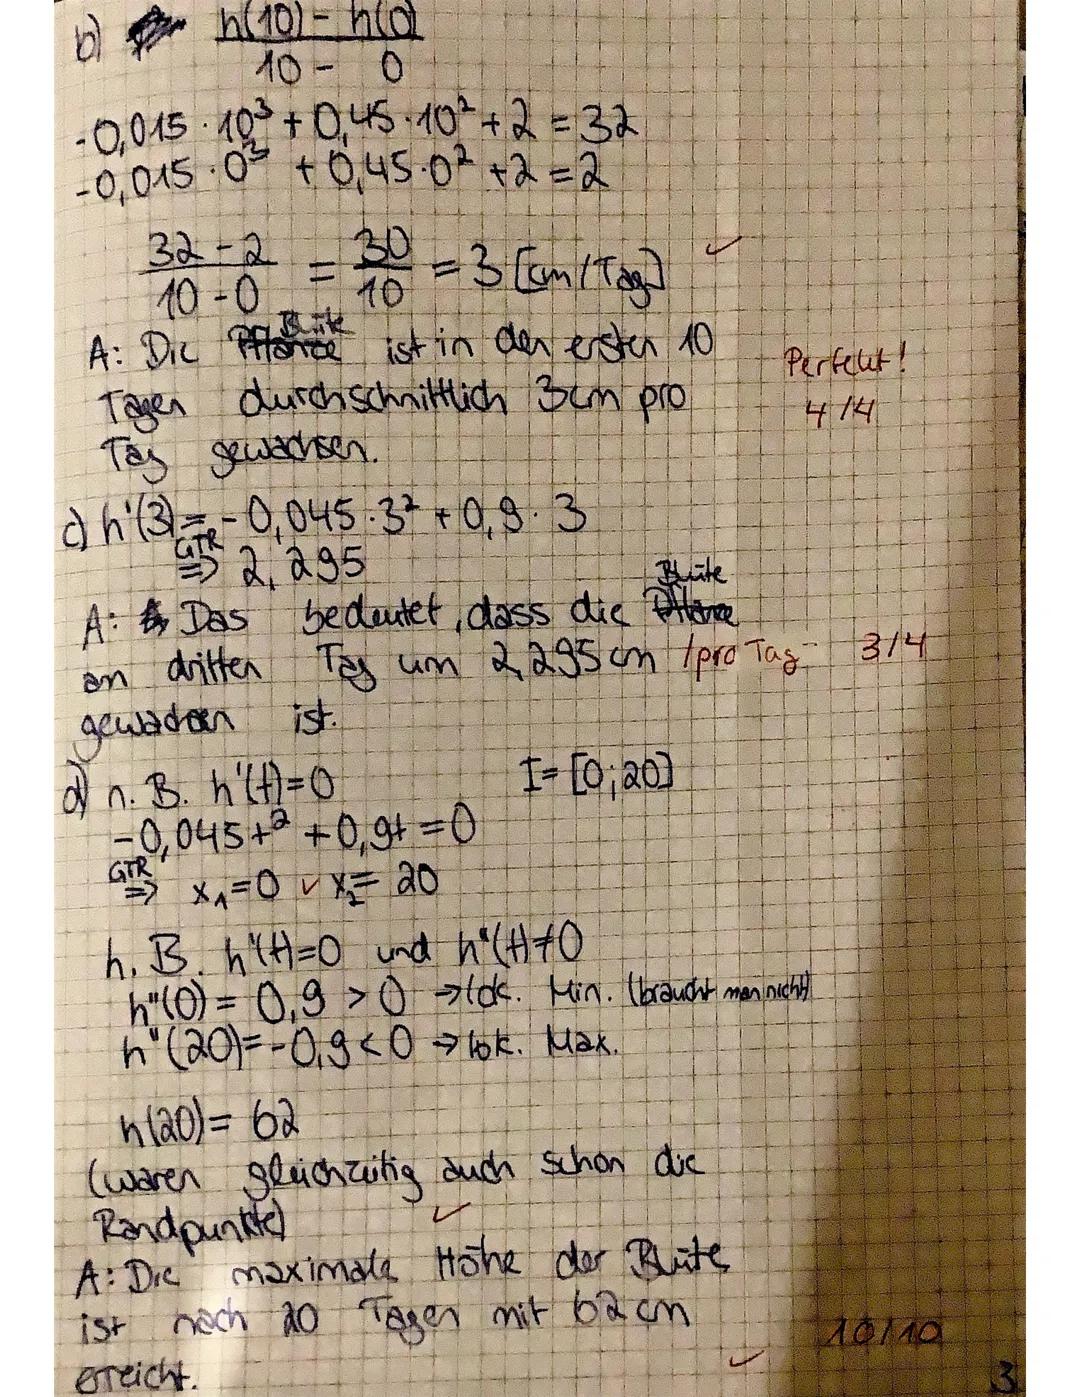 b) h(10) - h(0)
10 - 0
-0,015 · 10³ + 0,45 · 10² + 2 = 32
-0,015 · 0³ + 0,45 · 0² + 2 = 2
32 - 2 / 10 - 0 = 30 / 10 = 3 [cm/Tag] ✓
A: Die Blüte ist in den ersten 10
Tagen durchschnittlich 3cm pro
Tag gewachsen.
Perfekt!
4/4
c) h'(3) = -0,045 · 3² + 0,9 · 3
GTR
⇒ 2,295
A: Das bedeutet, dass die Blüte
am dritten Tag um 2,295 cm /pro Tag 3/4
gewachsen ist.
d) n. B. h'(t)=0 I=[0;20]
-0,045t² + 0,9t = 0
GTR
⇒ x₁=0 ✓ x₂= 20
h. B. h'(t)=0 und h"(t)≠0
h"(0) = 0,9 > 0 → lok. Min. (braucht man nicht)
h"(20)=-0,9 < 0 → lok. Max.
h(20) = 62
(waren gleichzeitig auch schon die
Randpunkte) ✓
A: Die maximale Höhe der Blüte
ist nach 20 Tagen mit 62 cm
erreicht. ✓
10/10
3